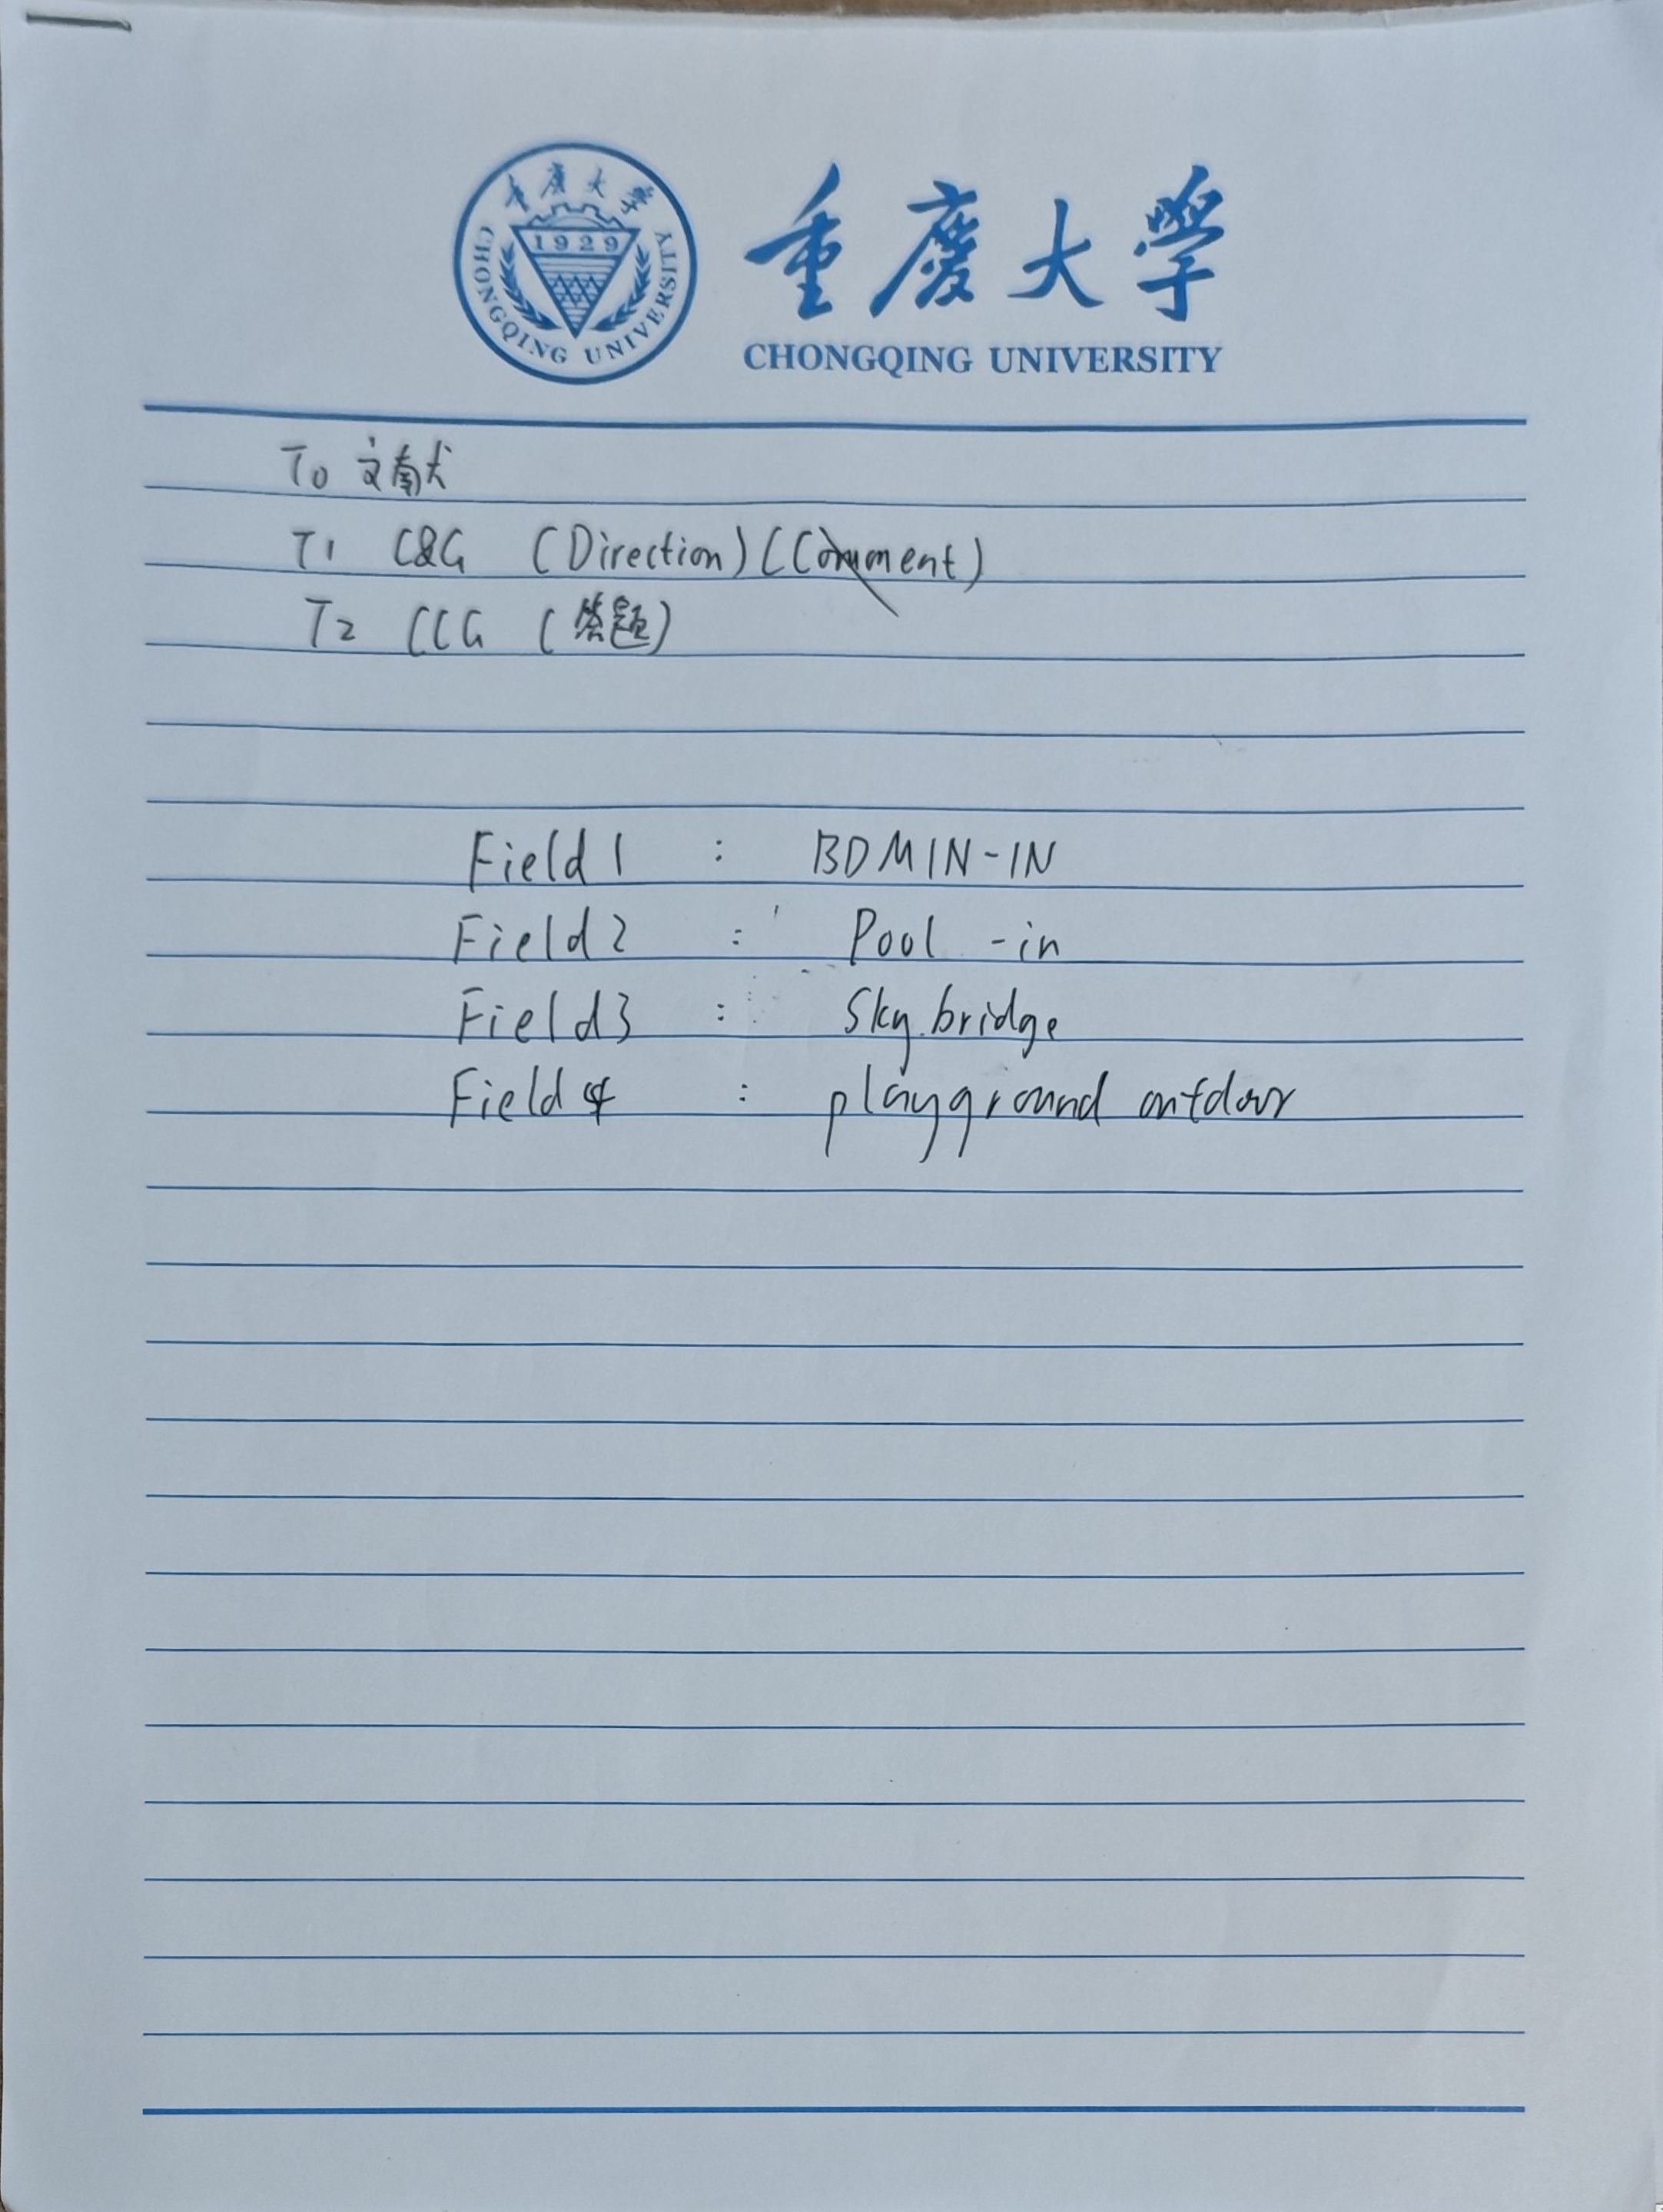 重慶大學
CHONGQING UNIVERSITY
1929
重慶大學
CHONGQING UNIVERSITY
T0 文献
T1 C&G (Direction) (Comment)
T2 CCG (答题)
Field 1 : BDMIN-IN
Field 2 : Pool -in
Field 3 : Sky bridge
Field 4 : playground outdoor